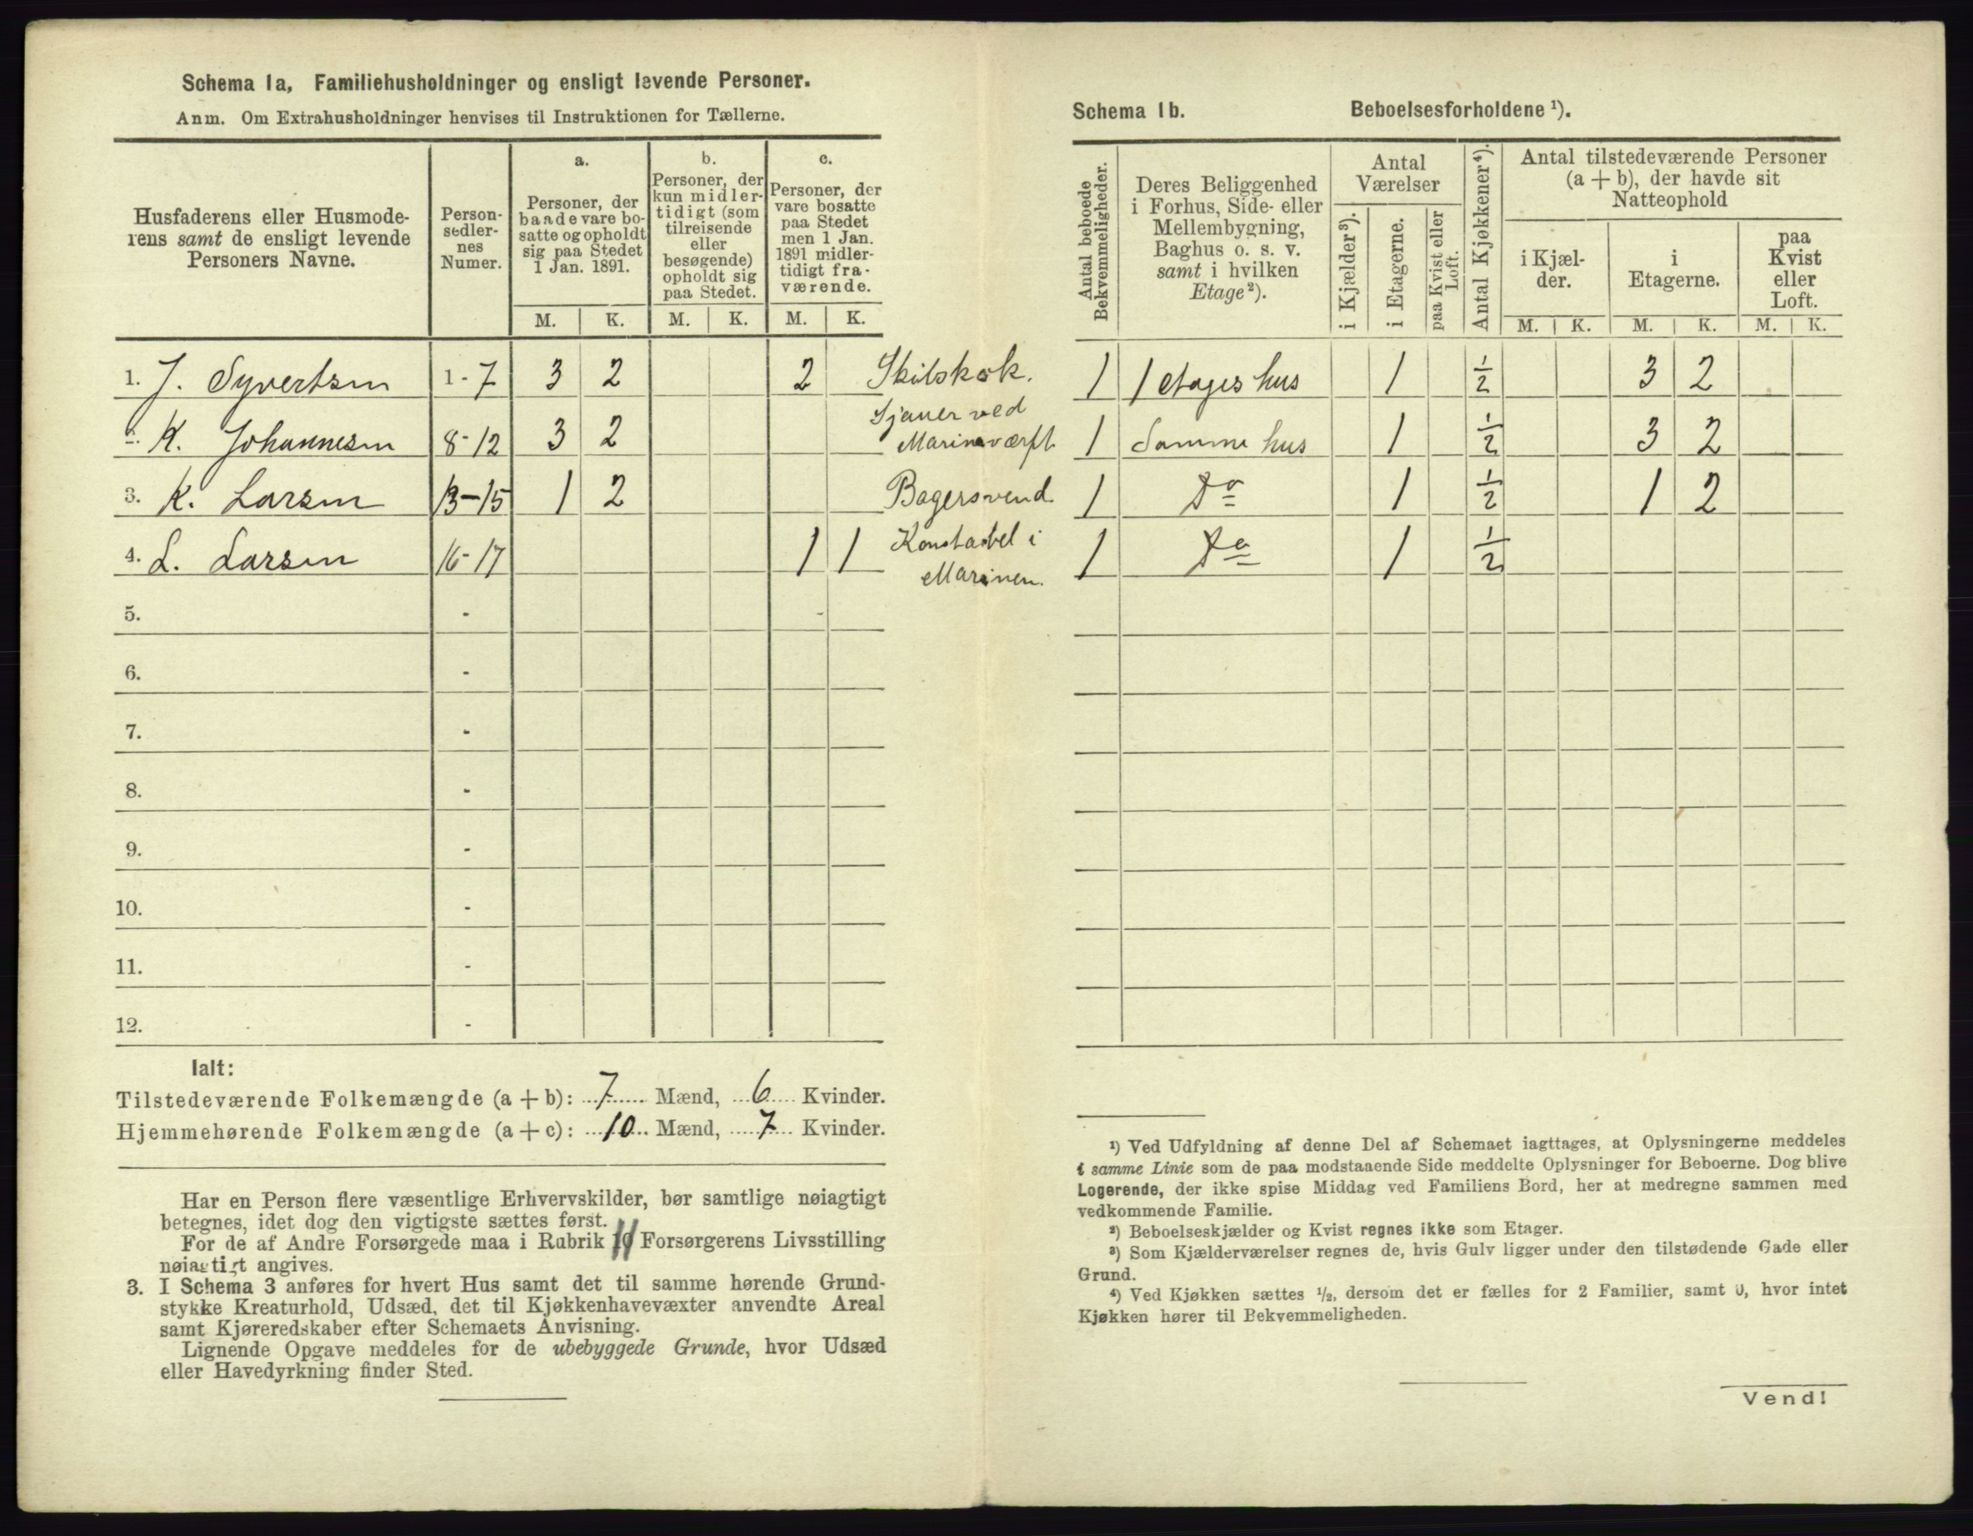 Schema 1a, Familiehusholdninger og ensligt levende Personer.
Anm. Om Extrahusholdninger henvises til Instruktionen for Tællerne.
Husfaderens eller Husmoderens samt de ensligt levende Personers Navne.
Personsedlernes Numer.
a.
Personer, der baade vare bosatte og opholdt sig paa Stedet 1 Jan. 1891.
b.
Personer, der kun midlertidigt (som tilreisende eller besøgende) opholdt sig paa Stedet.
c.
Personer, der vare bosatte paa Stedet men 1 Jan. 1891 midlertidigt fraværende.
M. K. M. K. M. K.
1. J. Syvertsen 1-7 3 2 2 Skibskok.
2. K. Johannesen 8-12 3 2 Sjauer ved Marineværft
3. K. Larsen 13-15 1 2 Bagersvend
4. L. Larsen 16-17 1 1 Konstabel i Marinen.
5. -
6. -
7. -
8. -
9. -
10. -
11. -
12. -
Ialt:
Tilstedeværende Folkemængde (a + b): 7 Mænd, 6 Kvinder.
Hjemmehørende Folkemængde (a + c): 10 Mænd, 7 Kvinder.
Har en Person flere væsentlige Erhvervskilder, bør samtlige nøiagtigt
betegnes, idet dog den vigtigste sættes først.
For de af Andre Forsørgede maa i Rubrik 11 Forsørgerens Livsstilling
nøiagtigt angives.
3. I Schema 3 anføres for hvert Hus samt det til samme hørende Grund-
stykke Kreaturhold, Udsæd, det til Kjøkkenhavevæxter anvendte Areal
samt Kjøreredskaber efter Schemaets Anvisning.
Lignende Opgave meddeles for de ubebyggede Grunde, hvor Udsæd
eller Havedyrkning finder Sted.
Schema 1b. Beboelsesforholdene ¹).
Antal beboede Bekvemmeligheder.
Deres Beliggenhed i Forhus, Side- eller Mellembygning, Baghus o. s. v. samt i hvilken Etage²).
Antal Værelser
i Kjælder³).
i Etagerne.
paa Kvist eller Loft.
Antal Kjøkkener⁴).
Antal tilstedeværende Personer (a + b), der havde sit Natteophold
i Kjælder.
i Etagerne.
paa Kvist eller Loft.
M. K. M. K. M. K.
1 1 etages hus 1 ½ 3 2
1 Samme hus 1 ½ 3 2
1 Do 1 ½ 1 2
1 Do 1 ½
¹) Ved Udfyldning af denne Del af Schemaet iagttages, at Oplysningerne meddeles
i samme Linie som de paa modstaaende Side meddelte Oplysninger for Beboerne. Dog blive
Logerende, der ikke spise Middag ved Familiens Bord, her at medregne sammen med
vedkommende Familie.
²) Beboelseskjælder og Kvist regnes ikke som Etager.
³) Som Kjælderværelser regnes de, hvis Gulv ligger under den tilstødende Gade eller
Grund.
⁴) Ved Kjøkken sættes ½, dersom det er fælles for 2 Familier, samt 0, hvor intet
Kjøkken hører til Bekvemmeligheden.
Vend!